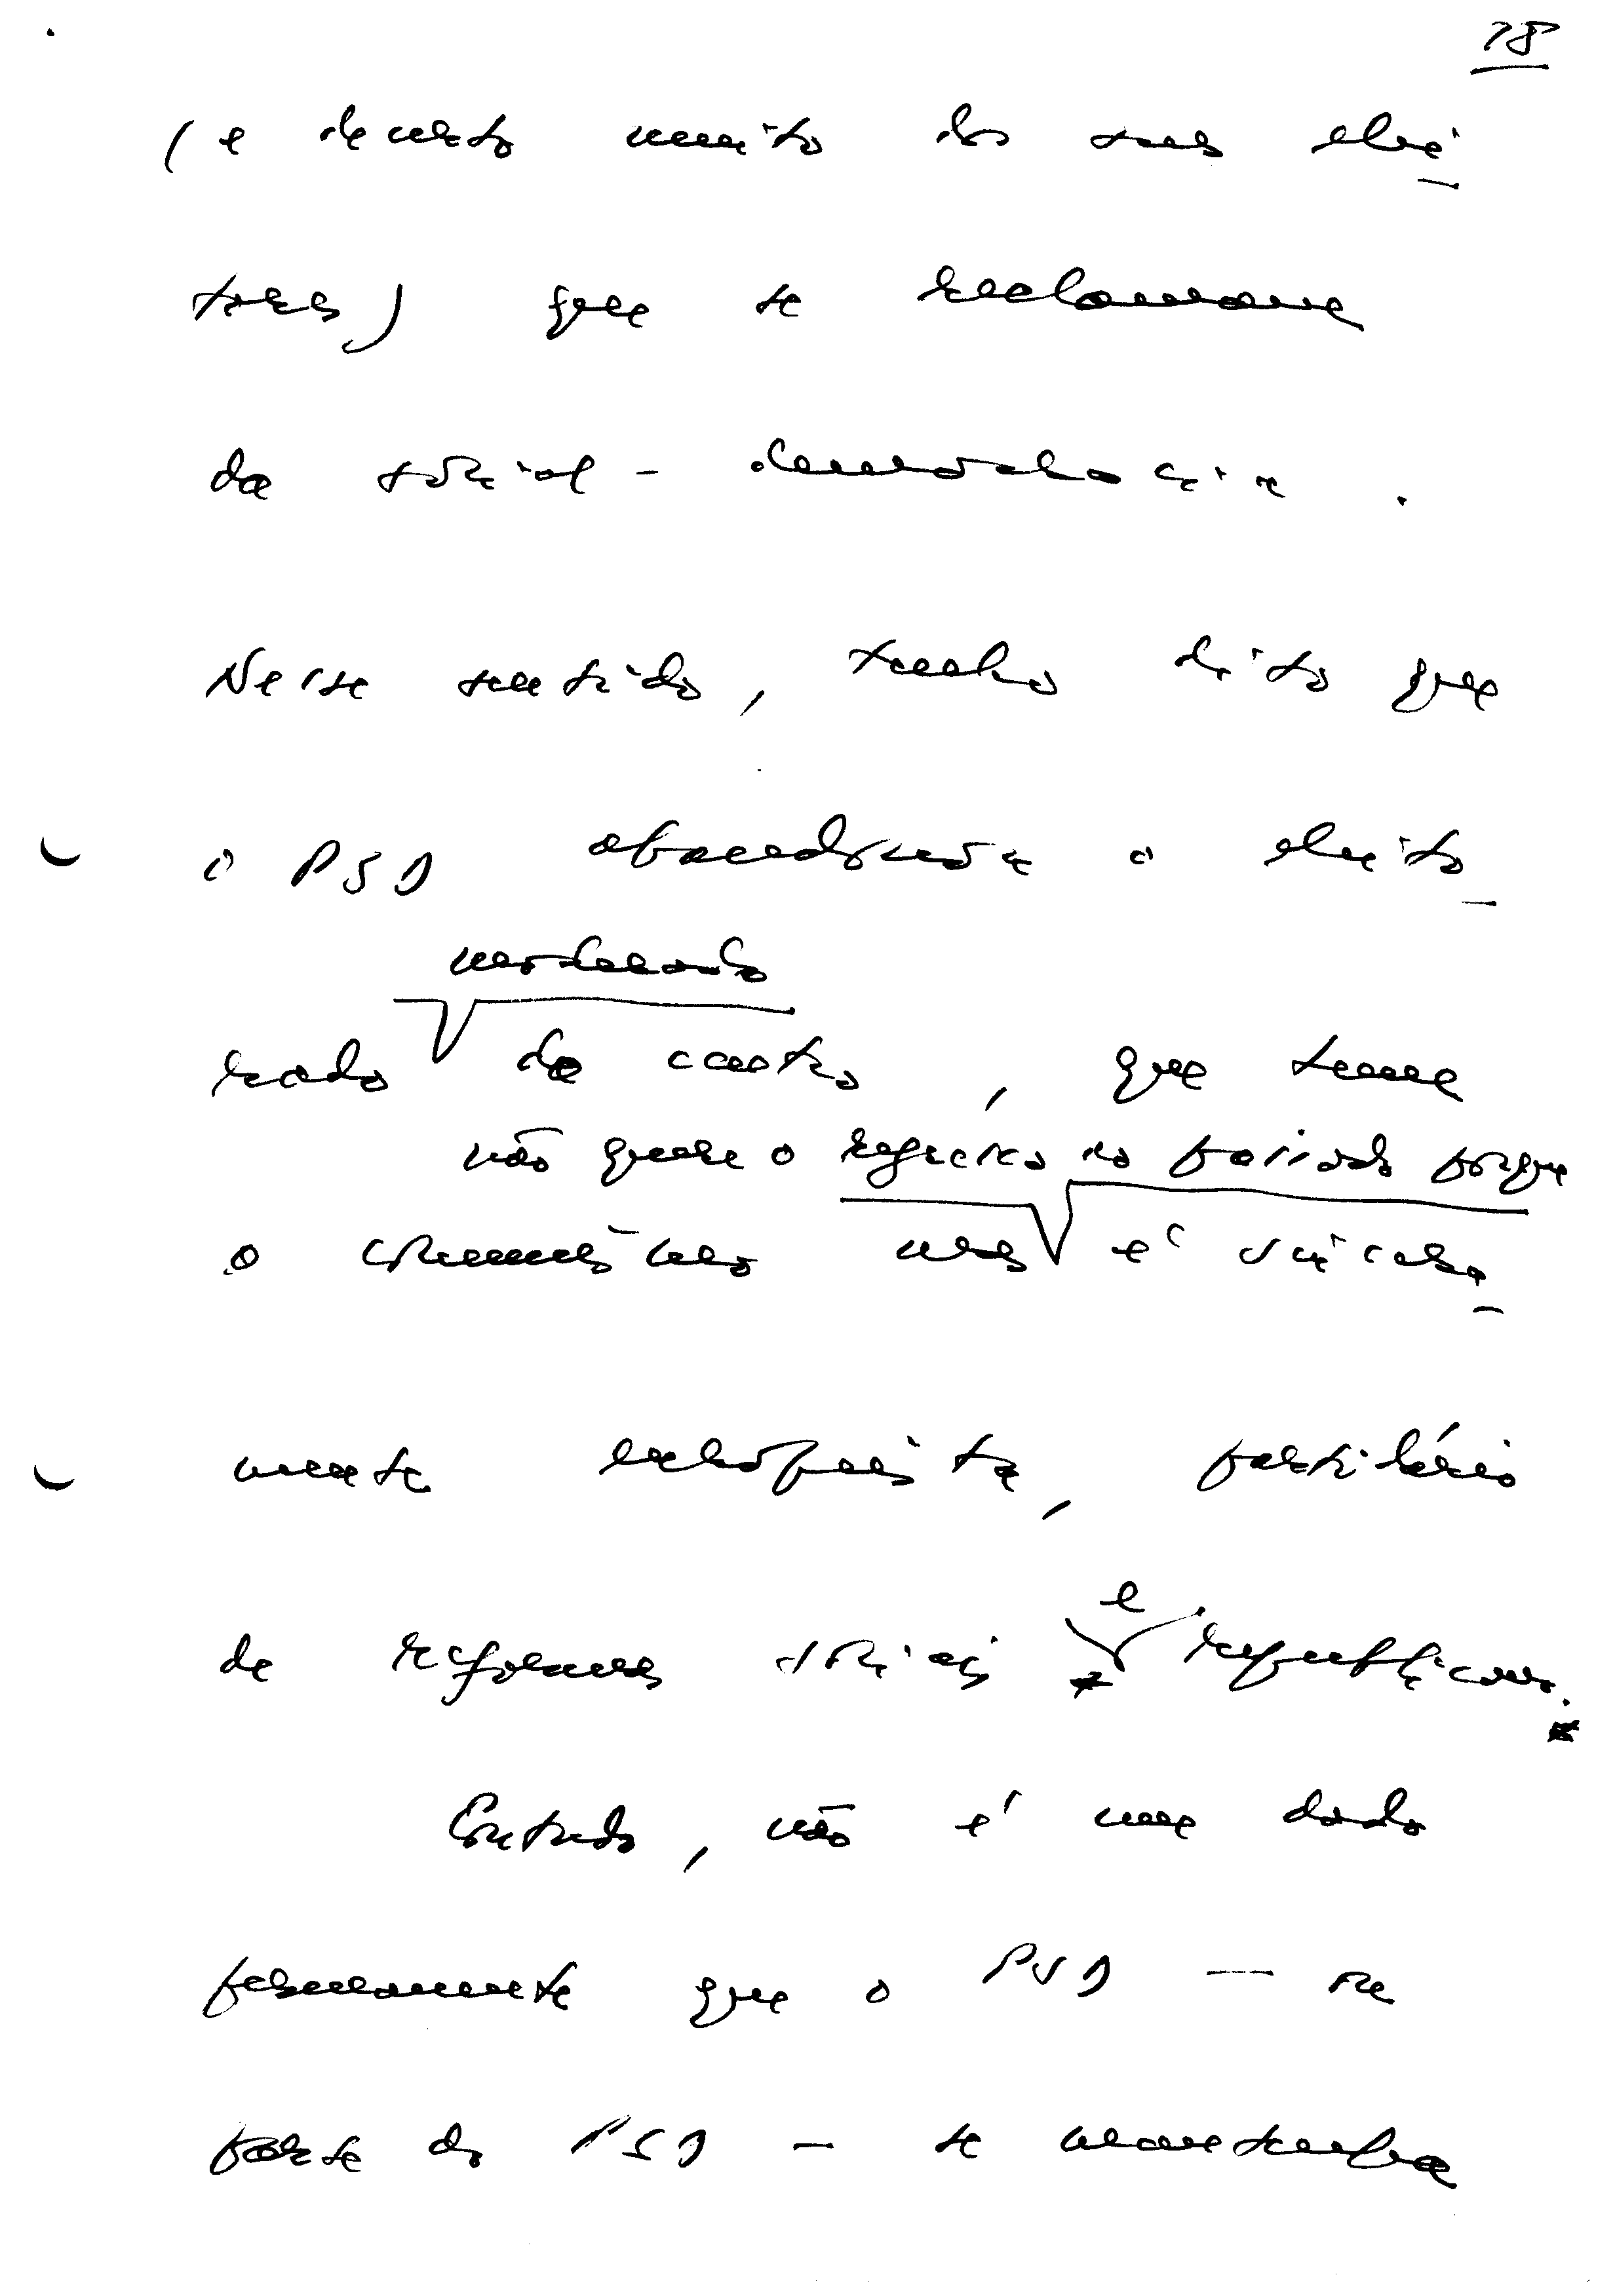 18
(e decerto muito dos seus elei-
tores) que se reclamam
da social-democracia.
Nesse sentido, tenho dito que
o PSD abandonou o eleito-
moderado
rado de centro, que teme
não quere o regresso ao passado porque
o comunismo mas é sincera-
mente reformista, partidário
de reformas sociais e republicano.
Contudo, não é um dado
permanente que o PSD — ou
parte do PSD — se mantenha